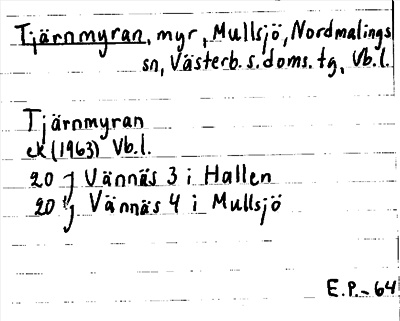 Tjärnmyran, myr, Mullsjö, Nordmalings
sn, Västerb. s. doms. tg, Vb. l.
Tjärnmyran
ek (1963) Vb. l.
20 j Vännäs 3 i Hallen
20 ij Vännäs 4 i Mullsjö
E.P. - 64